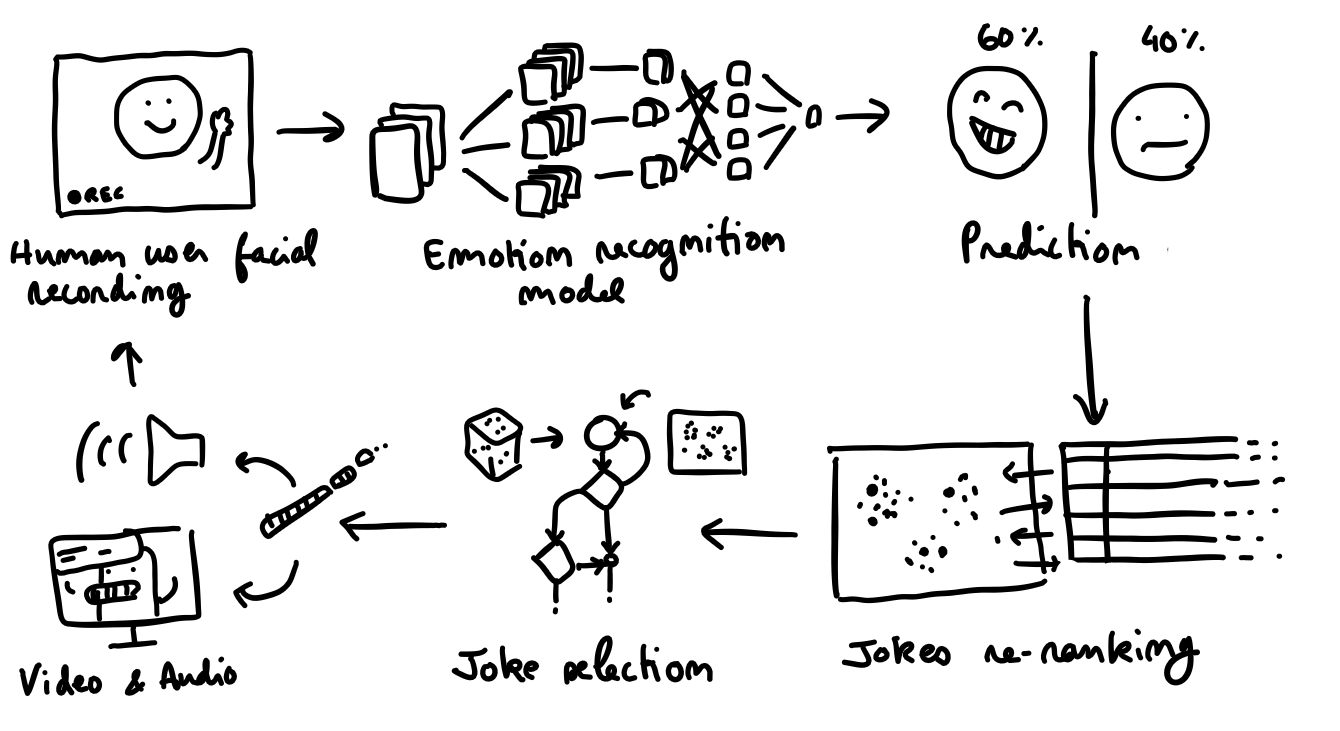 60%.
40%.
REC
Human user facial
recording
Emotion recognition
model
Prediction
Jokes re-ranking
Joke selection
Video & Audio